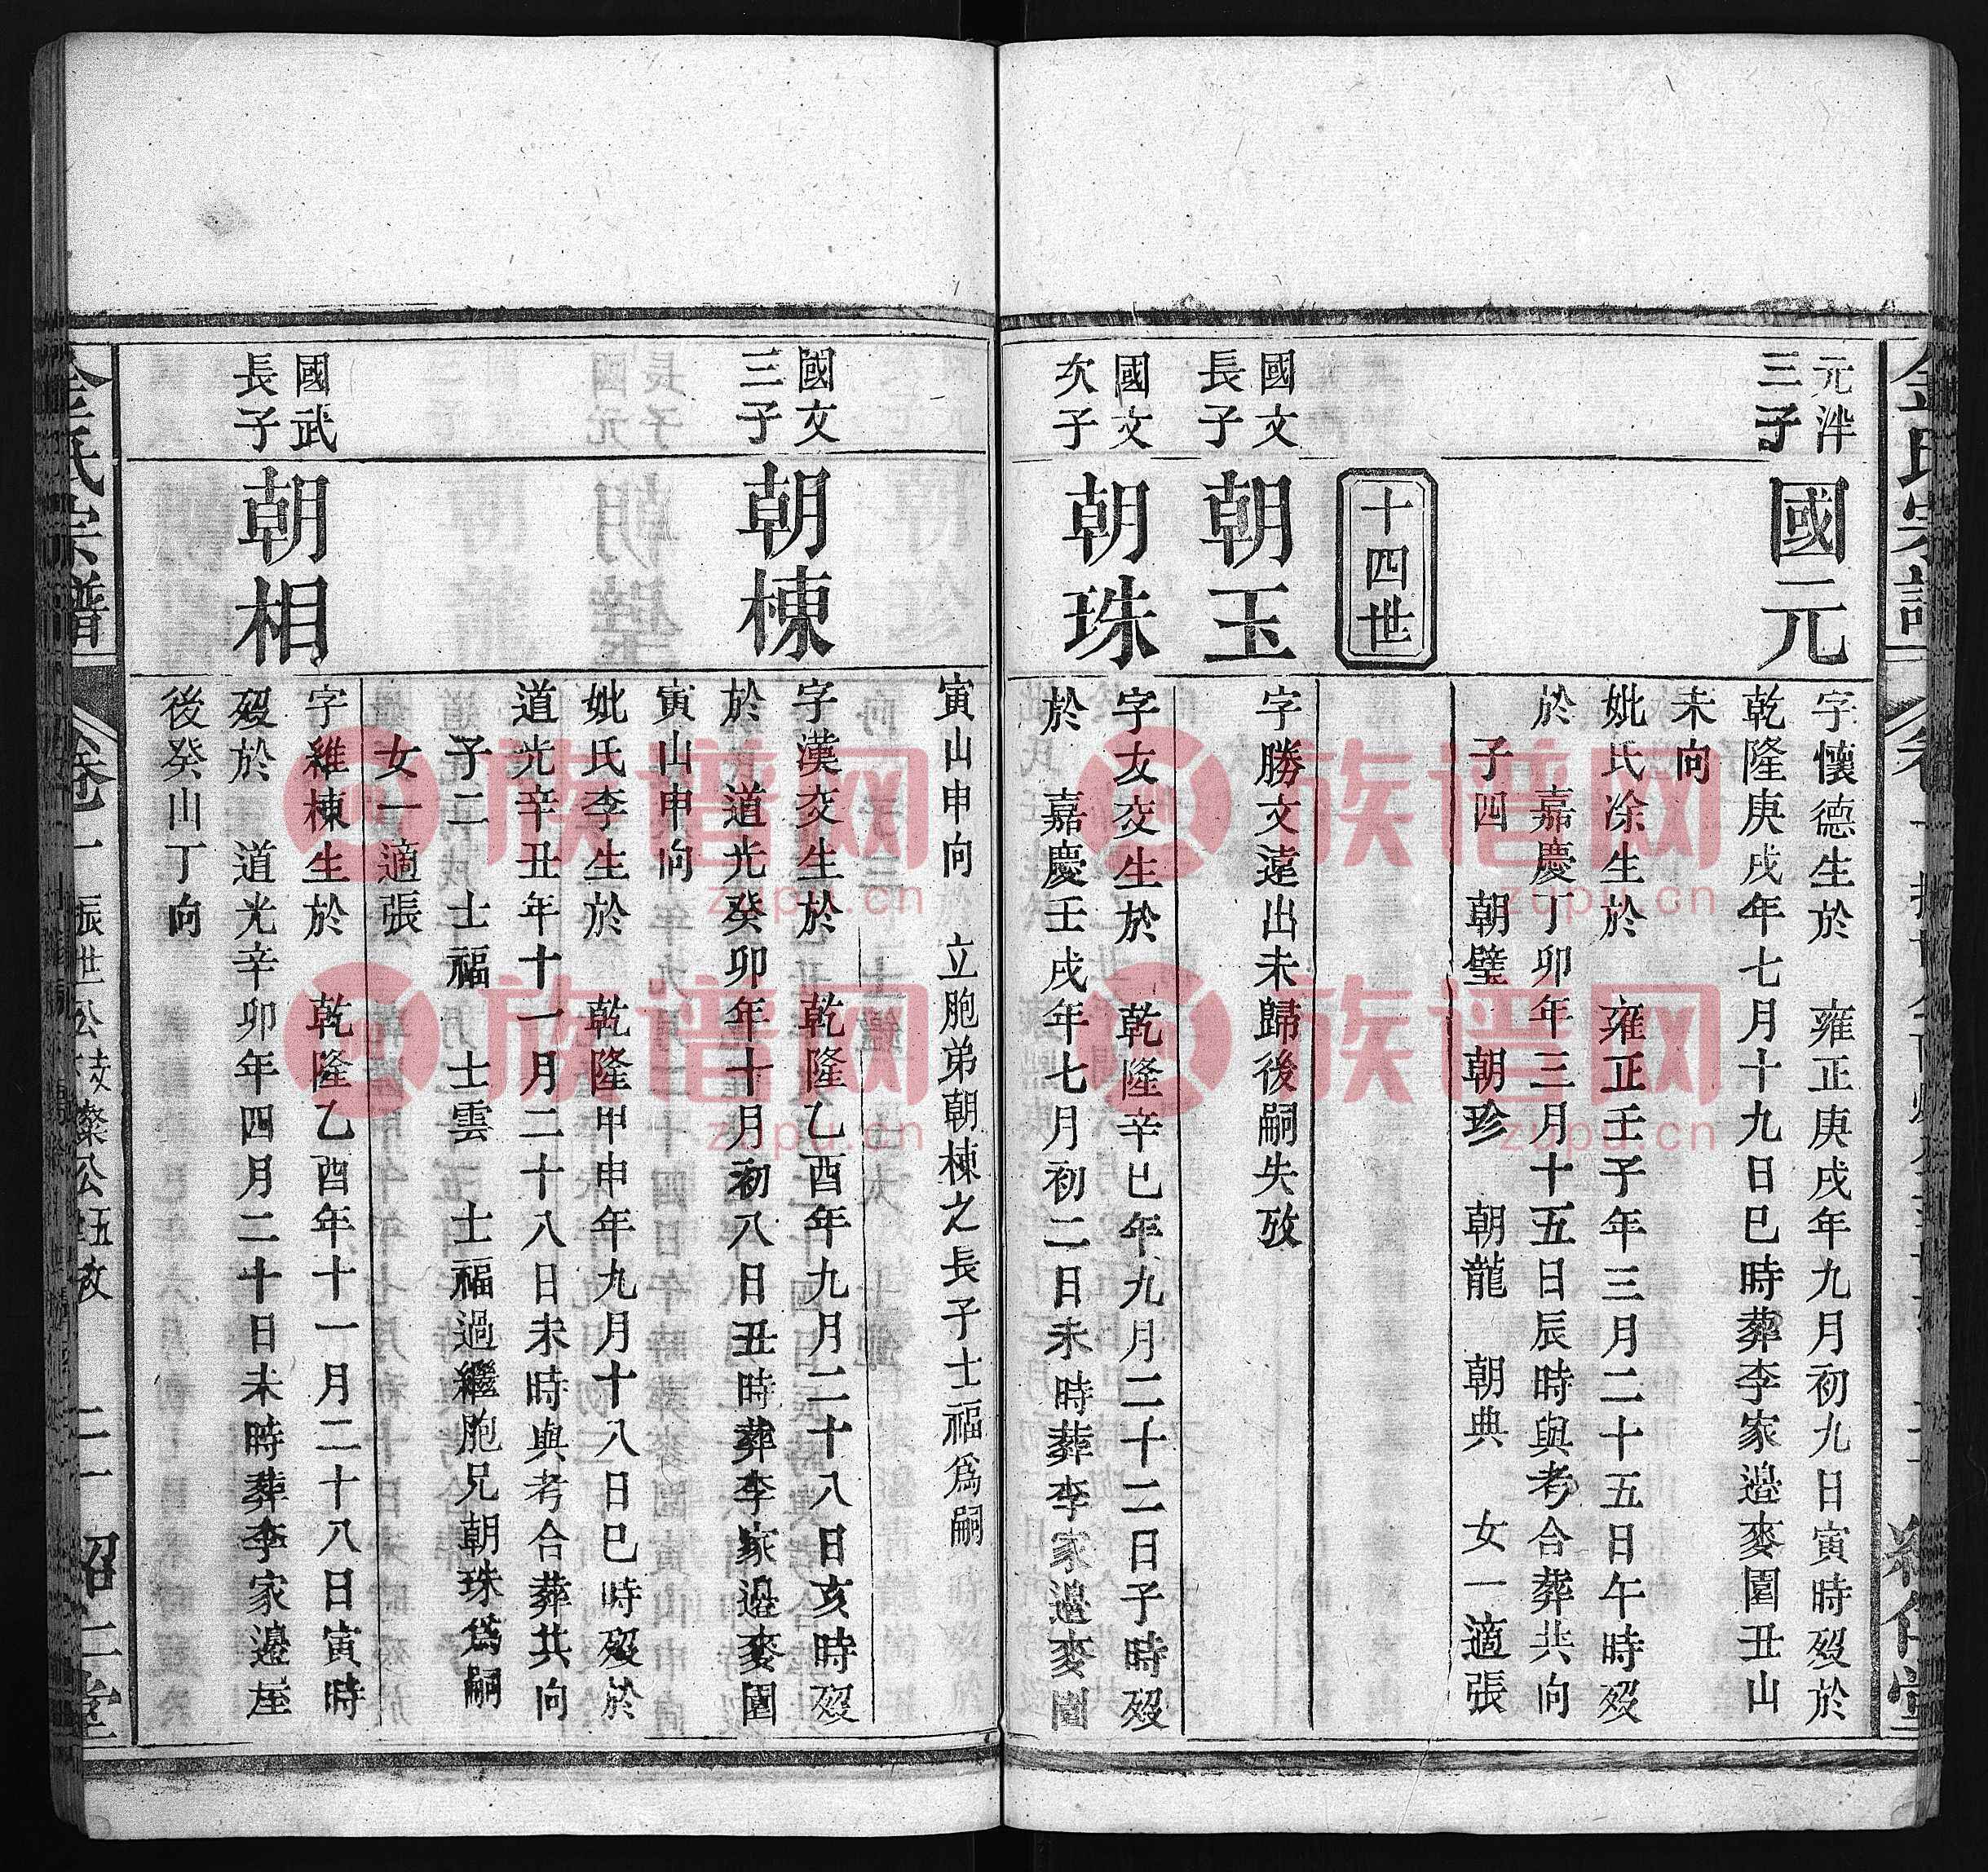 元泮
三子
國元
字懷德生於　雍正庚戌年九月初九日寅時歿於
乾隆庚戌年七月十九日巳時葬李家邉麥園丑山
未向
妣氏涂生於　雍正壬子年三月二十五日午時歿
於　嘉慶丁卯年三月十五日辰時與考合葬共向
子四　朝璧　朝珍　朝龍　朝典　女一適張
十四世
國文
長子
朝玉
字勝文遠出未歸後嗣失攷
國文
次子
朝珠
字友交生於　乾隆辛巳年九月二十二日子時歿
於　嘉慶壬戌年七月初二日未時葬李家邉麥園
寅山申向　立胞弟朝棟之長子士福爲嗣
國文
三子
朝棟
字漢交生於　乾隆乙酉年九月二十八日亥時歿
於　道光癸卯年十月初八日丑時葬李家邉麥園
寅山申向
妣氏李生於　乾隆甲申年九月十八日巳時歿於
道光辛丑年十一月二十八日未時與考合葬共向
子二　士福　士雲　士福過繼胞兄朝珠爲嗣
女一適張
國武
長子
朝相
字維棟生於　乾隆乙酉年十一月二十八日寅時
歿於　道光辛卯年四月二十日未時葬李家邉屋
後癸山丁向
金氏宗譜
卷一
振世公枝燦公五攷
二十一
昭仁堂
族谱网
zupu.cn
族谱网
zupu.cn
族谱网
zupu.cn
族谱网
zupu.cn